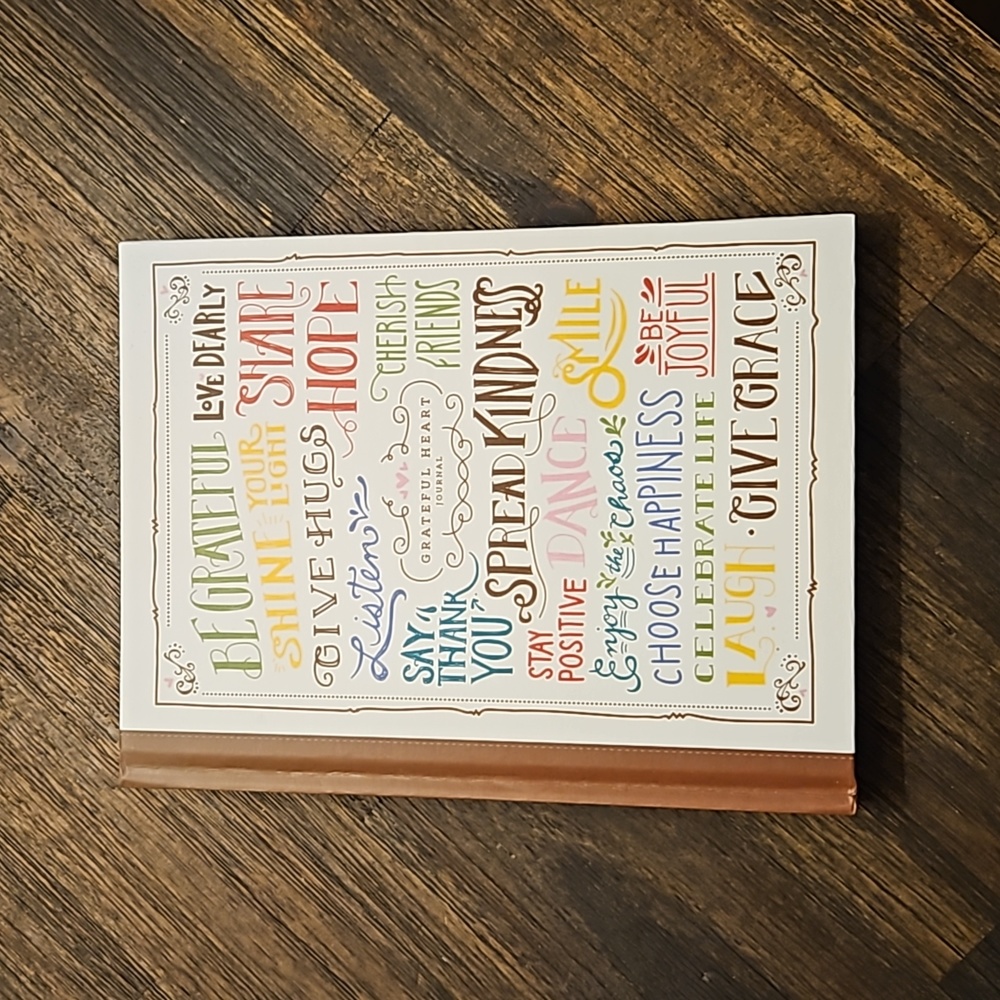 BE GRATEFUL LOVE DEARLY
SHINE YOUR LIGHT SHARE
GIVE HUGS HOPE
Listen
CHERISH
FRIENDS
GRATEFUL HEART
JOURNAL
SAY,
THANK
YOU
SPREAD KINDNESS
STAY
POSITIVE
DANCE
SMILE
Enjoy the Chaos
BE
JOYFUL
CHOOSE HAPPINESS
CELEBRATE LIFE
LAUGH · GIVE GRACE